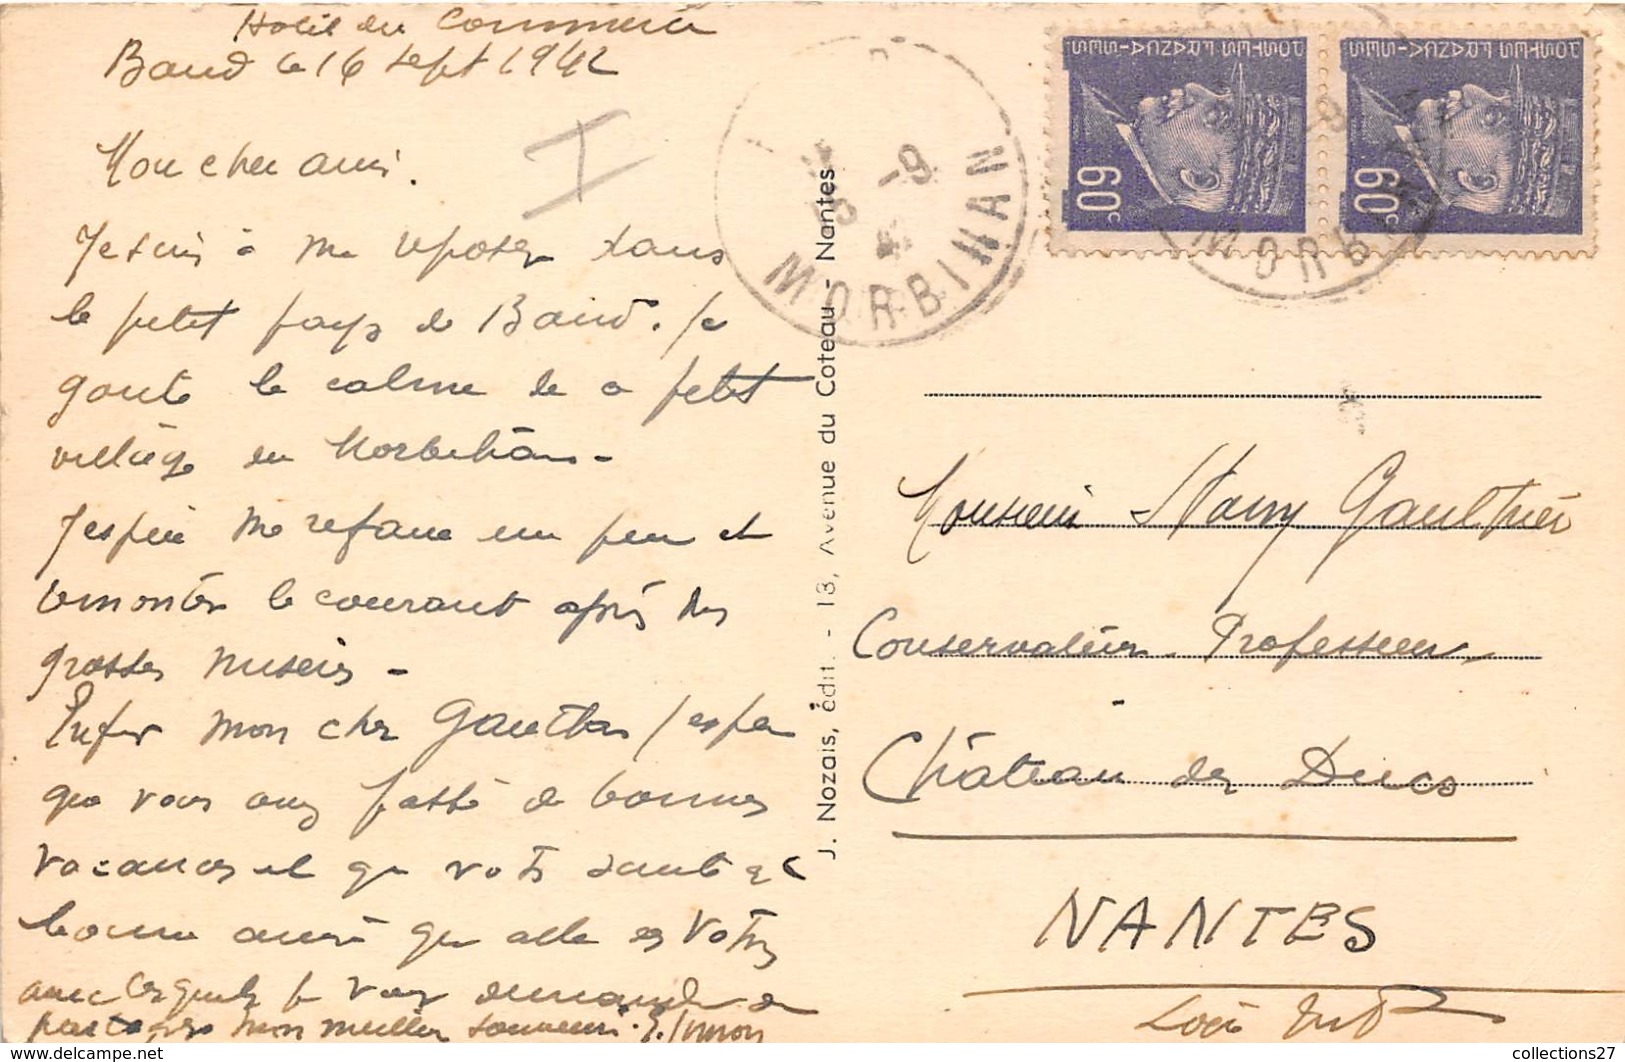 Hotel du Commerce
Baud le 16 Sept 1942
Mon cher ami.
Je suis à me reposer dans
le petit pays de Baud. Je
goute le calme de ce petit
village du Morbihan -
J'espère me refaire un peu et
remonter le courant après des
grosses misères -
Enfin mon cher Gauthier j'espère
que vous avez passé de bonnes
vacances et que votre santé est
bonne ainsi que celle des Votres
avec lesquels je vous demande de
partager mon meilleur souvenir. E. Simon
I
-9
MORBIHAN
POSTES FRANÇAISES
60c
POSTES FRANÇAISES
60c
MORBIHAN
J. Nozais, édit. - 13, Avenue du Coteau - Nantes
Monsieur Stany Gauthier
Conservateur Professeur
Château des Ducs
NANTES
Loire Infre
collections27